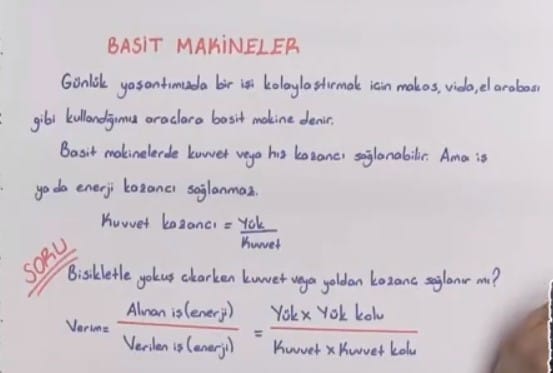 BASİT MAKİNELER
Günlük yaşantımızda bir işi kolaylaştırmak için makas, vida, el arabası
gibi kullandığımız araçlara basit makine denir.
Basit makinelerde kuvvet veya hız kazancı sağlanabilir. Ama iş
ya da enerji kazancı sağlanmaz.
Kuvvet kazancı = Yük
Kuvvet
SORU
Bisikletle yokuş çıkarken kuvvet veya yoldan kazanç sağlanır mı?
Verim = Alınan iş (enerji) = Yük x Yük kolu
Verilen iş (enerji) Kuvvet x Kuvvet kolu